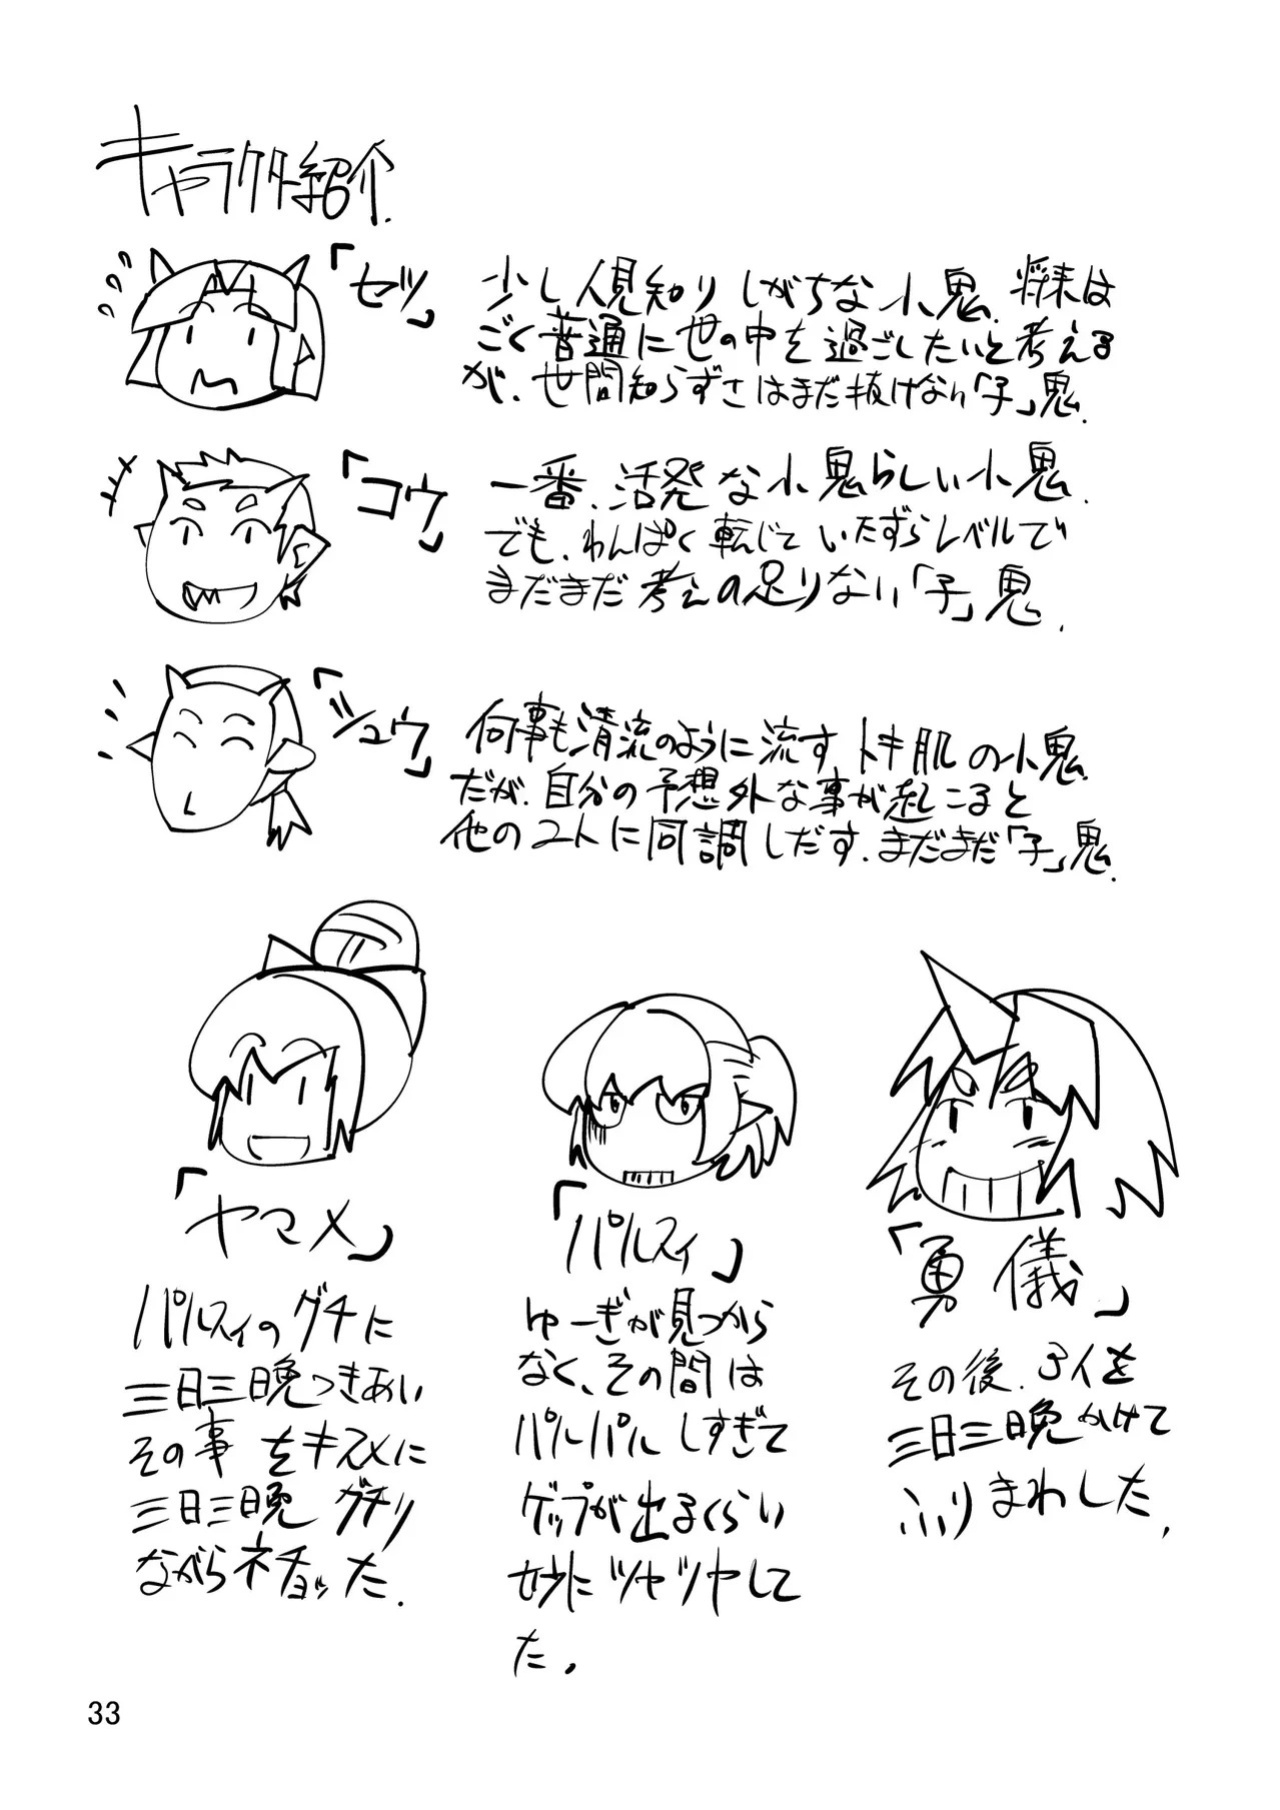 キャラクター紹介.
「セツ」
少し人見知りしがちな小鬼. 将来は
ごく普通に世の中を過ごしたいと考える
が、世間知らずさはまだ抜けない「子」鬼.
「コウ」
一番、活発な小鬼らしい小鬼.
でも、わんぱく転じていたずらレベルで
まだまだ考えの足りない「子」鬼.
「シュウ」
何事も清流のように流す 肌の小鬼.
だが、自分の予想外な事が起こると
他の2人に同調しだす、まだまだ「子」鬼.
「ヤマメ」
パルスィのグチに
三日三晩つきあい
その事をキスメに
三日三晩グチり
ながらネチョった.
「パルスィ」
ゆーぎが見つから
なく、その間は
パルパルしすぎて
ゲップが出るくらい
妙にツヤツヤして
た.
「勇儀」
その後、3人を
三日三晩かけて
ふりまわした.
33